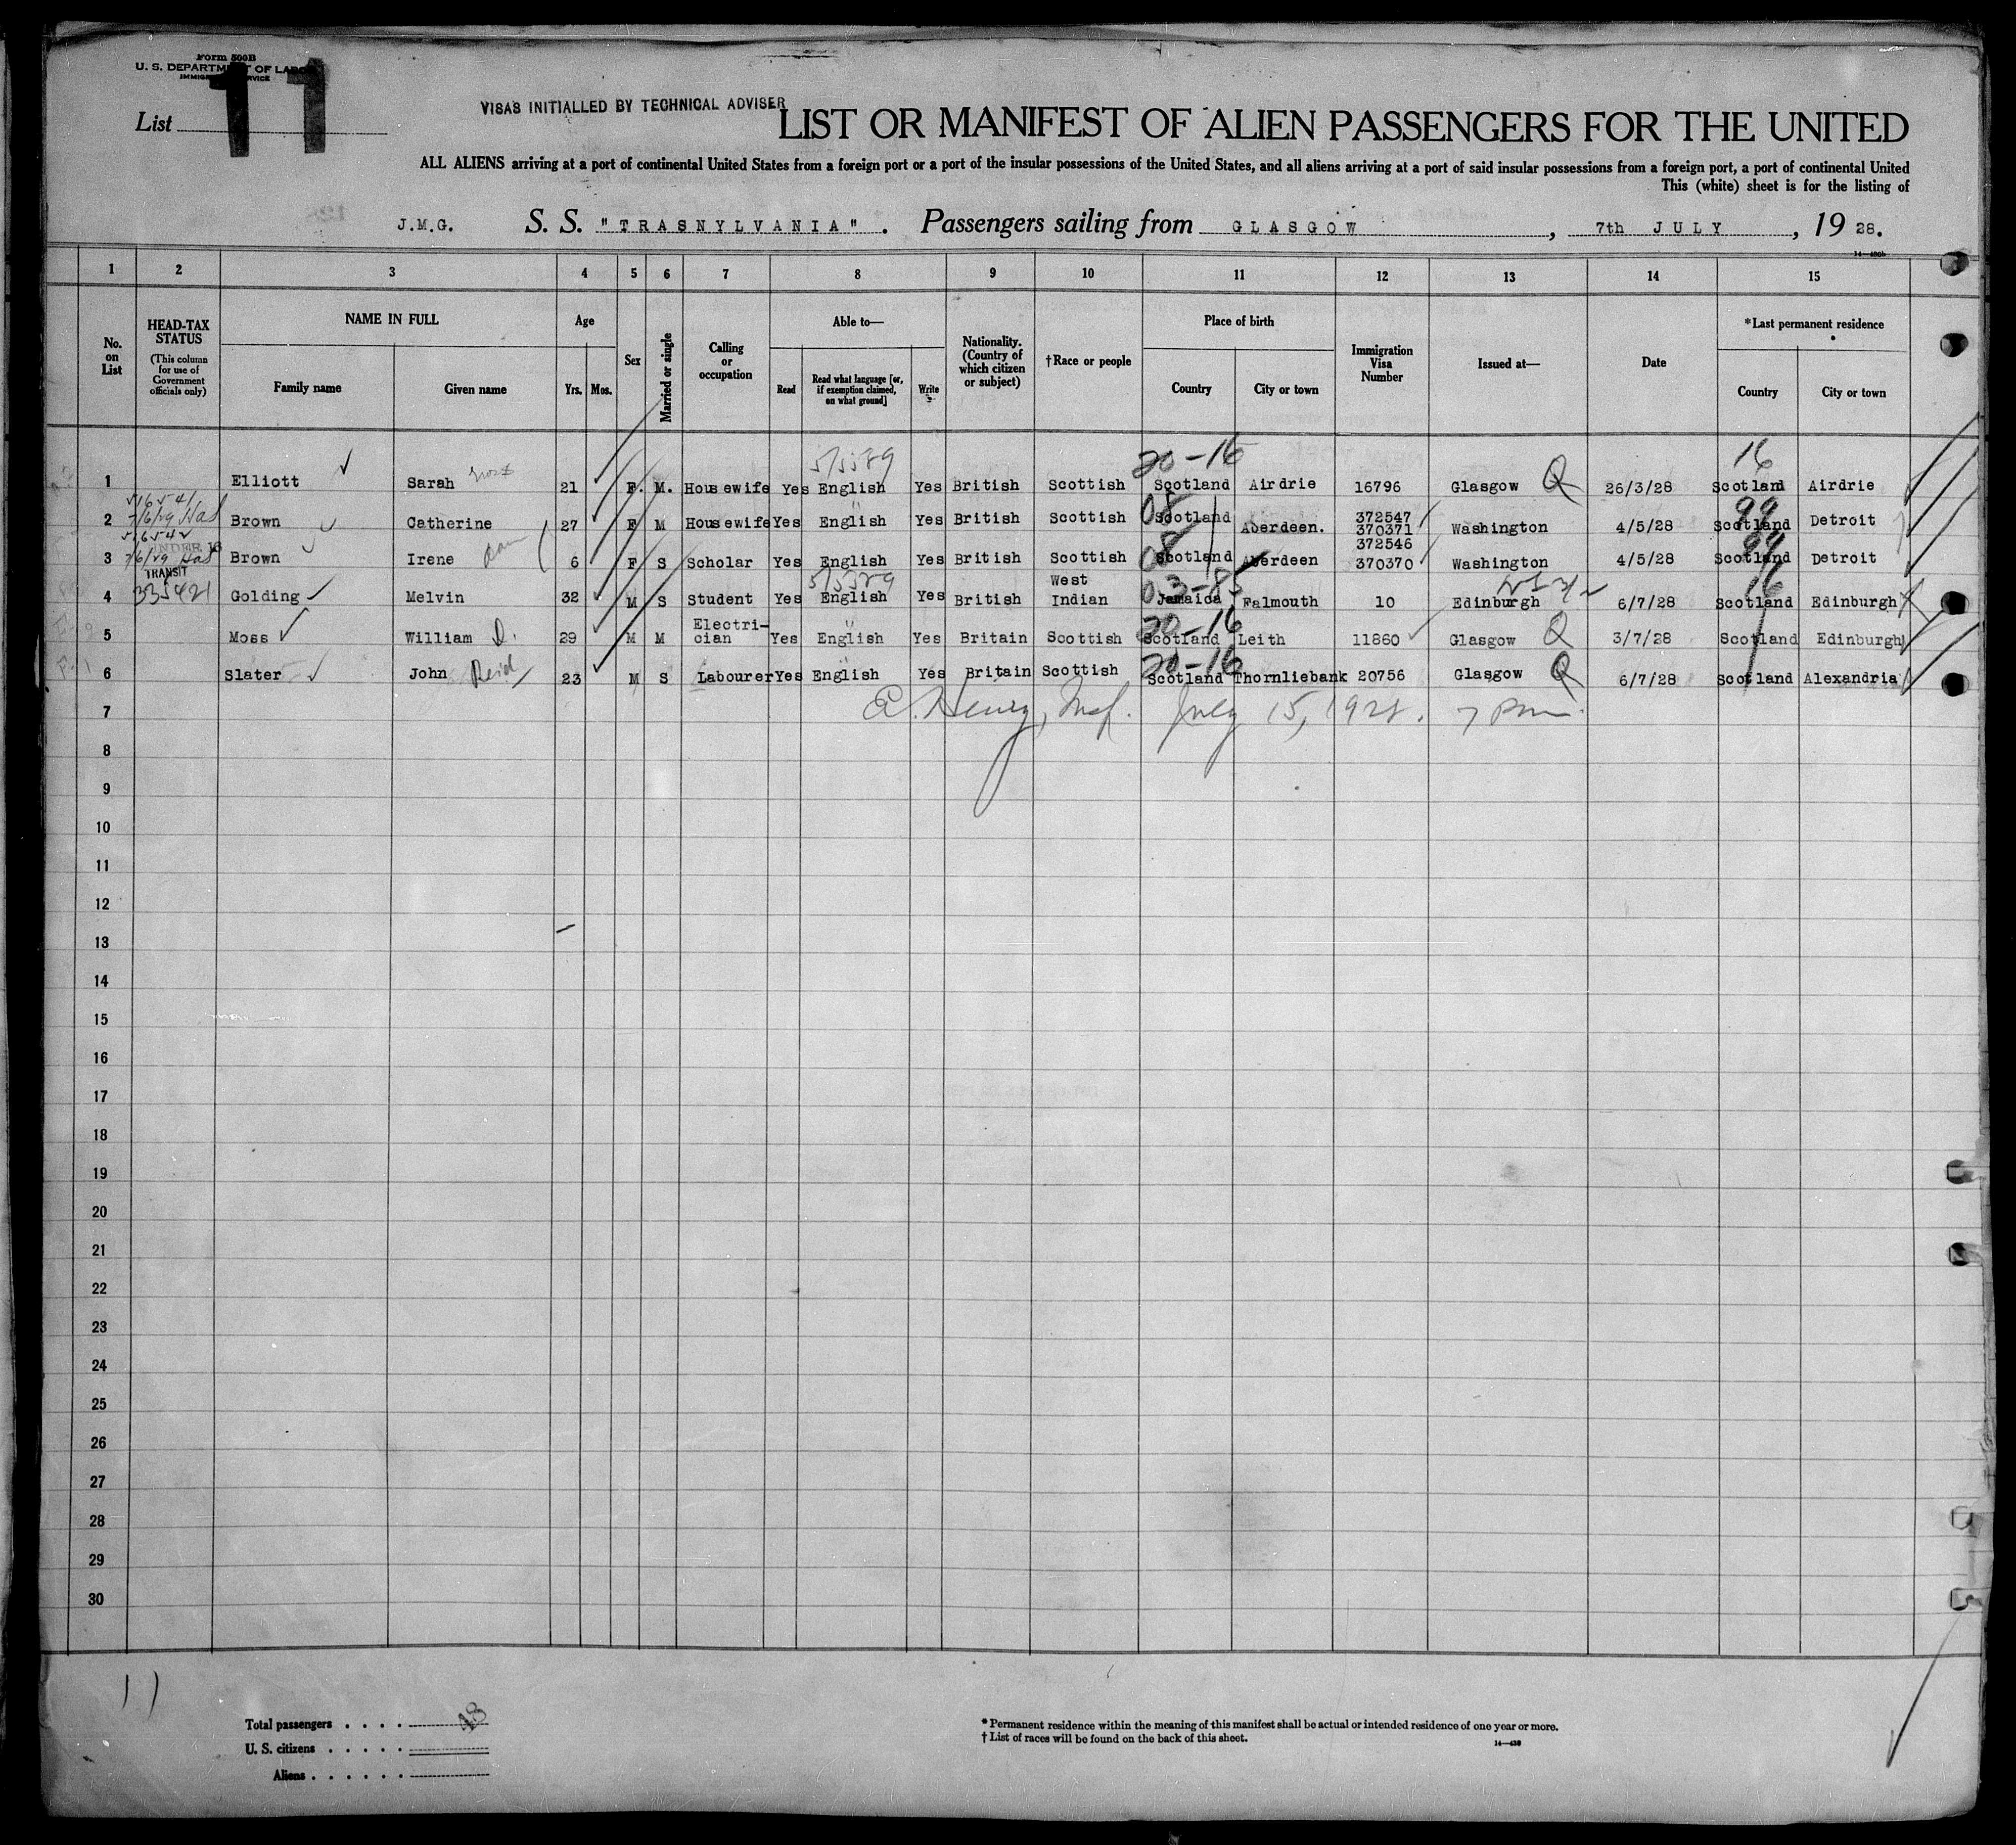 Form 500B
U. S. DEPARTMENT OF LABOR
IMMIGRATION SERVICE
List 11
VISAS INITIALLED BY TECHNICAL ADVISER
LIST OR MANIFEST OF ALIEN PASSENGERS FOR THE UNITED
ALL ALIENS arriving at a port of continental United States from a foreign port or a port of the insular possessions of the United States, and all aliens arriving at a port of said insular possessions from a foreign port, a port of continental United
This (white) sheet is for the listing of
J.M.G. S. S. "TRASNYLVANIA". Passengers sailing from GLASGOW, 7th JULY, 1928.
1 2 3 4 5 6 7 8 9 10 11 12 13 14 15
No. on List
HEAD-TAX STATUS (This column for use of Government officials only)
NAME IN FULL
Family name Given name
Age
Yrs. Mos.
Sex
Married or single
Calling or occupation
Able to—
Read Read what language [or, if exemption claimed, on what ground] Write
Nationality. (Country of which citizen or subject)
†Race or people
Place of birth
Country City or town
Immigration Visa Number
Issued at—
Date
*Last permanent residence
Country City or town
20-16 16
1 Elliott Sarah 21 F. M. Housewife Yes English Yes British Scottish Scotland Airdrie 16796 Glasgow Q 26/3/28 Scotland Airdrie
2 Brown Catherine 27 F M Housewife Yes English Yes British Scottish 08 Scotland Aberdeen. 372547 370371 Washington 4/5/28 99 Scotland Detroit
3 UNDER 16 Brown Irene 6 F S Scholar Yes English Yes British Scottish 08 Scotland Aberdeen 372546 370370 Washington 4/5/28 99 Scotland Detroit
4 TRANSIT 335421 Golding Melvin 32 M S Student Yes English Yes British West Indian Jamaica Falmouth 10 Edinburgh 6/7/28 16 Scotland Edinburgh
5 Moss William D. 29 M M Electri-cian Yes English Yes Britain Scottish 20-16 Scotland Leith 11860 Glasgow Q 3/7/28 Scotland Edinburgh
6 Slater John Reid 23 M S Labourer Yes English Yes Britain Scottish 20-16 Scotland Thornliebank 20756 Glasgow Q 6/7/28 Scotland Alexandria
7 E. Henry, Insp. July 15, 1928. 7 Pm.
8
9
10
11
12
13
14
15
16
17
18
19
20
21
22
23
24
25
26
27
28
29
30
11
Total passengers . . . .
U. S. citizens . . . . .
Aliens . . . . . .
* Permanent residence within the meaning of this manifest shall be actual or intended residence of one year or more.
† List of races will be found on the back of this sheet.
14—430